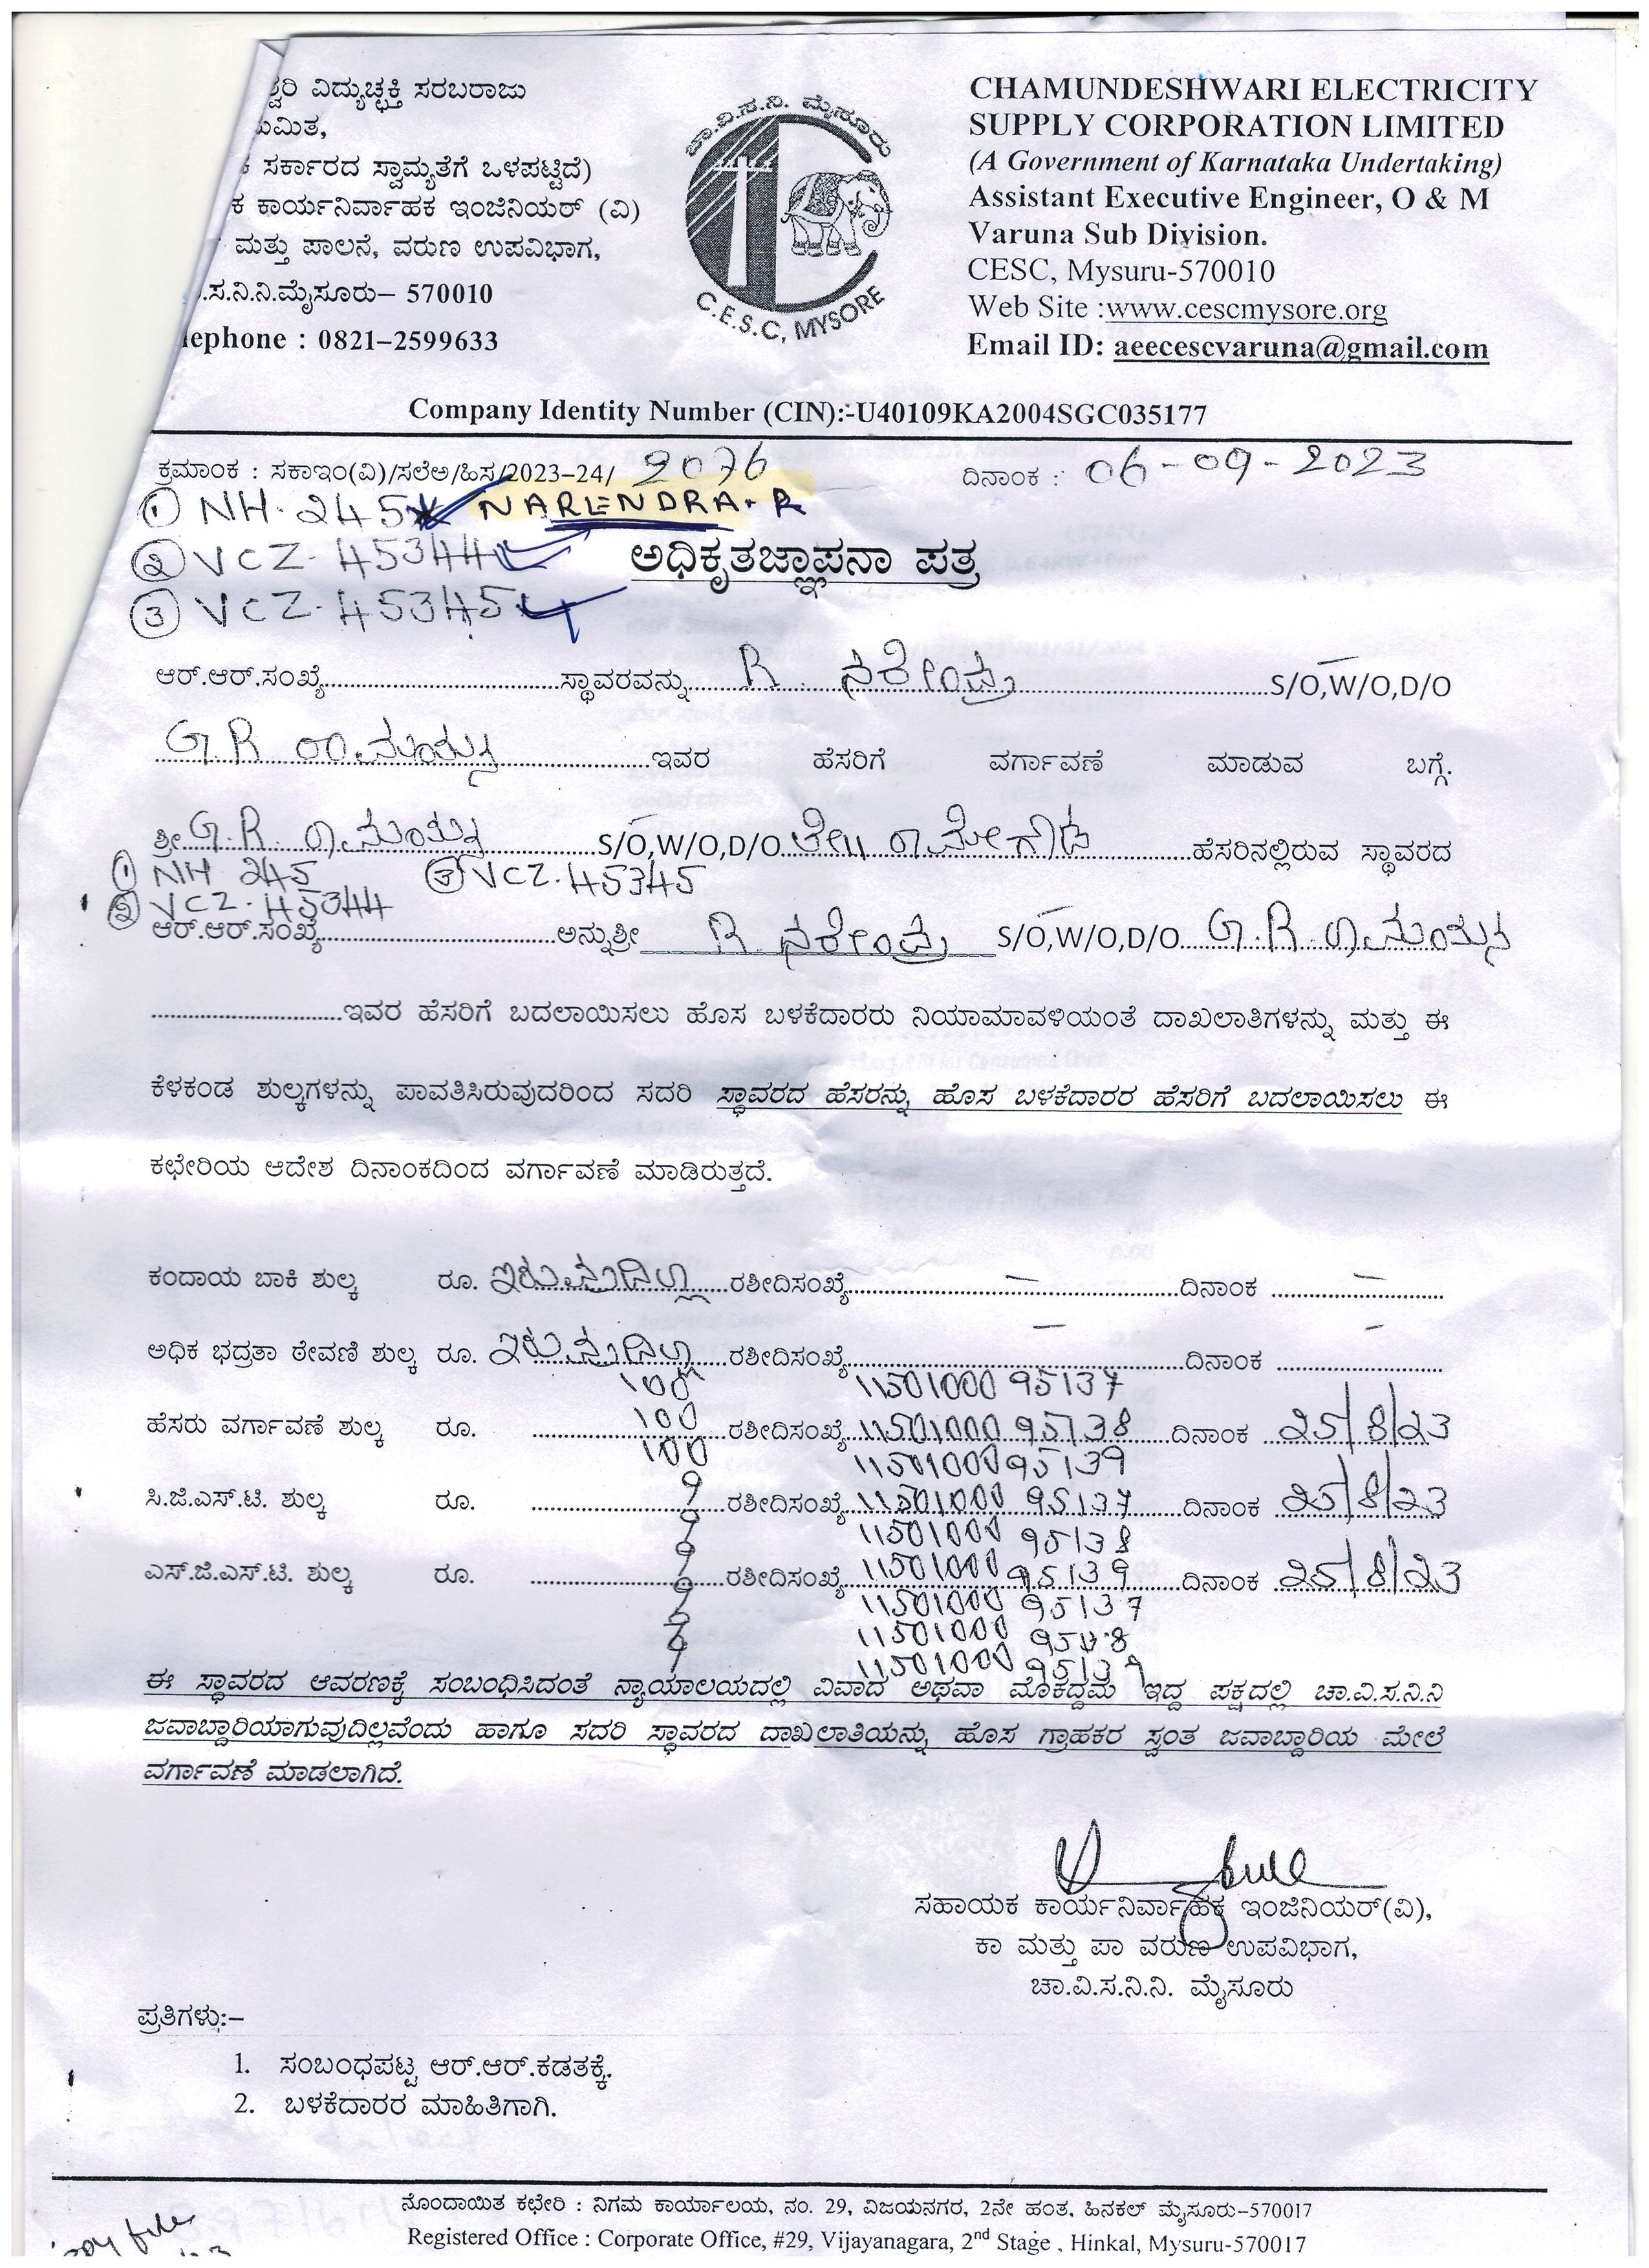 ಶ್ವರಿ ವಿದ್ಯುಚ್ಛಕ್ತಿ ಸರಬರಾಜು
ಮಿತ,
ಸರ್ಕಾರದ ಸ್ವಾಮ್ಯತೆಗೆ ಒಳಪಟ್ಟಿದೆ)
ಕ ಕಾರ್ಯನಿರ್ವಾಹಕ ಇಂಜಿನಿಯರ್ (ವಿ)
ಮತ್ತು ಪಾಲನೆ, ವರುಣ ಉಪವಿಭಾಗ,
.ಸ.ನಿ.ನಿ.ಮೈಸೂರು– 570010
lephone : 0821–2599633
ಚಾ.ವಿ.ಸ.ನಿ. ಮೈಸೂರು
C.E.S.C, MYSORE
CHAMUNDESHWARI ELECTRICITY
SUPPLY CORPORATION LIMITED
(A Government of Karnataka Undertaking)
Assistant Executive Engineer, O & M
Varuna Sub Division.
CESC, Mysuru-570010
Web Site :www.cescmysore.org
Email ID: aeecescvaruna@gmail.com
Company Identity Number (CIN):-U40109KA2004SGC035177
ಕ್ರಮಾಂಕ : ಸಕಾಇಂ(ವಿ)/ಸಲೆಅ/ಹಿಸ/2023–24/ 2076 ದಿನಾಂಕ : 06-09-2023
① NH-245 NARENDRA. R
② VCZ-45344
ಅಧಿಕೃತಜ್ಞಾಪನಾ ಪತ್ರ
③ VCZ-45345
ಆರ್.ಆರ್.ಸಂಖ್ಯೆ..........ಸ್ಥಾವರವನ್ನು..... R ನರೇಂದ್ರ ..........S/O,W/O,D/O
G.R ರಾಮಯ್ಯ ..........ಇವರ ಹೆಸರಿಗೆ ವರ್ಗಾವಣೆ ಮಾಡುವ ಬಗ್ಗೆ.
ಶ್ರೀ G.R ರಾಮಯ್ಯ S/O,W/O,D/O ಲೇ॥ ರಾಮೇಗೌಡ ..........ಹೆಸರಿನಲ್ಲಿರುವ ಸ್ಥಾವರದ
① NH 245 ③ VCZ-45345
② VCZ-45344
ಆರ್.ಆರ್.ಸಂಖ್ಯೆ..........ಅನ್ನುಶ್ರೀ R ನರೇಂದ್ರ S/O,W/O,D/O G.R ರಾಮಯ್ಯ
..........ಇವರ ಹೆಸರಿಗೆ ಬದಲಾಯಿಸಲು ಹೊಸ ಬಳಕೆದಾರರು ನಿಯಾಮಾವಳಿಯಂತೆ ದಾಖಲಾತಿಗಳನ್ನು ಮತ್ತು ಈ
ಕೆಳಕಂಡ ಶುಲ್ಕಗಳನ್ನು ಪಾವತಿಸಿರುವುದರಿಂದ ಸದರಿ ಸ್ಥಾವರದ ಹೆಸರನ್ನು ಹೊಸ ಬಳಕೆದಾರರ ಹೆಸರಿಗೆ ಬದಲಾಯಿಸಲು ಈ
ಕಛೇರಿಯ ಆದೇಶ ದಿನಾಂಕದಿಂದ ವರ್ಗಾವಣೆ ಮಾಡಿರುತ್ತದೆ.
ಕಂದಾಯ ಬಾಕಿ ಶುಲ್ಕ ರೂ. ಇರುವುದಿಲ್ಲ ರಶೀದಿಸಂಖ್ಯೆ.......... — ..........ದಿನಾಂಕ .......... —
ಅಧಿಕ ಭದ್ರತಾ ಠೇವಣಿ ಶುಲ್ಕ ರೂ. ಇರುವುದಿಲ್ಲ ರಶೀದಿಸಂಖ್ಯೆ.......... — ..........ದಿನಾಂಕ .......... —
100 11501000 95137
ಹೆಸರು ವರ್ಗಾವಣೆ ಶುಲ್ಕ ರೂ. 100 ರಶೀದಿಸಂಖ್ಯೆ 11501000 95138 ದಿನಾಂಕ 25/8/23
100 11501000 95139
ಸಿ.ಜಿ.ಎಸ್.ಟಿ. ಶುಲ್ಕ ರೂ. 9 ರಶೀದಿಸಂಖ್ಯೆ 11501000 95137 ದಿನಾಂಕ 25/8/23
9 11501000 95138
ಎಸ್.ಜಿ.ಎಸ್.ಟಿ. ಶುಲ್ಕ ರೂ. 9 ರಶೀದಿಸಂಖ್ಯೆ 11501000 95139 ದಿನಾಂಕ 25/8/23
9 11501000 95137
9 11501000 95138
9 11501000 95139
ಈ ಸ್ಥಾವರದ ಆವರಣಕ್ಕೆ ಸಂಬಂಧಿಸಿದಂತೆ ನ್ಯಾಯಾಲಯದಲ್ಲಿ ವಿವಾದ ಅಥವಾ ಮೊಕದ್ದಮೆ ಇದ್ದ ಪಕ್ಷದಲ್ಲಿ ಚಾ.ವಿ.ಸ.ನಿ.ನಿ
ಜವಾಬ್ದಾರಿಯಾಗುವುದಿಲ್ಲವೆಂದು ಹಾಗೂ ಸದರಿ ಸ್ಥಾವರದ ದಾಖಲಾತಿಯನ್ನು ಹೊಸ ಗ್ರಾಹಕರ ಸ್ವಂತ ಜವಾಬ್ದಾರಿಯ ಮೇಲೆ
ವರ್ಗಾವಣೆ ಮಾಡಲಾಗಿದೆ.
ಸಹಾಯಕ ಕಾರ್ಯನಿರ್ವಾಹಕ ಇಂಜಿನಿಯರ್(ವಿ),
ಕಾ ಮತ್ತು ಪಾ ವರುಣ ಉಪವಿಭಾಗ,
ಚಾ.ವಿ.ಸ.ನಿ.ನಿ. ಮೈಸೂರು
ಪ್ರತಿಗಳು:–
1. ಸಂಬಂಧಪಟ್ಟ ಆರ್.ಆರ್.ಕಡತಕ್ಕೆ.
2. ಬಳಕೆದಾರರ ಮಾಹಿತಿಗಾಗಿ.
ನೊಂದಾಯಿತ ಕಛೇರಿ : ನಿಗಮ ಕಾರ್ಯಾಲಯ, ನಂ. 29, ವಿಜಯನಗರ, 2ನೇ ಹಂತ, ಹಿನಕಲ್ ಮೈಸೂರು–570017
Registered Office : Corporate Office, #29, Vijayanagara, 2nd Stage , Hinkal, Mysuru-570017